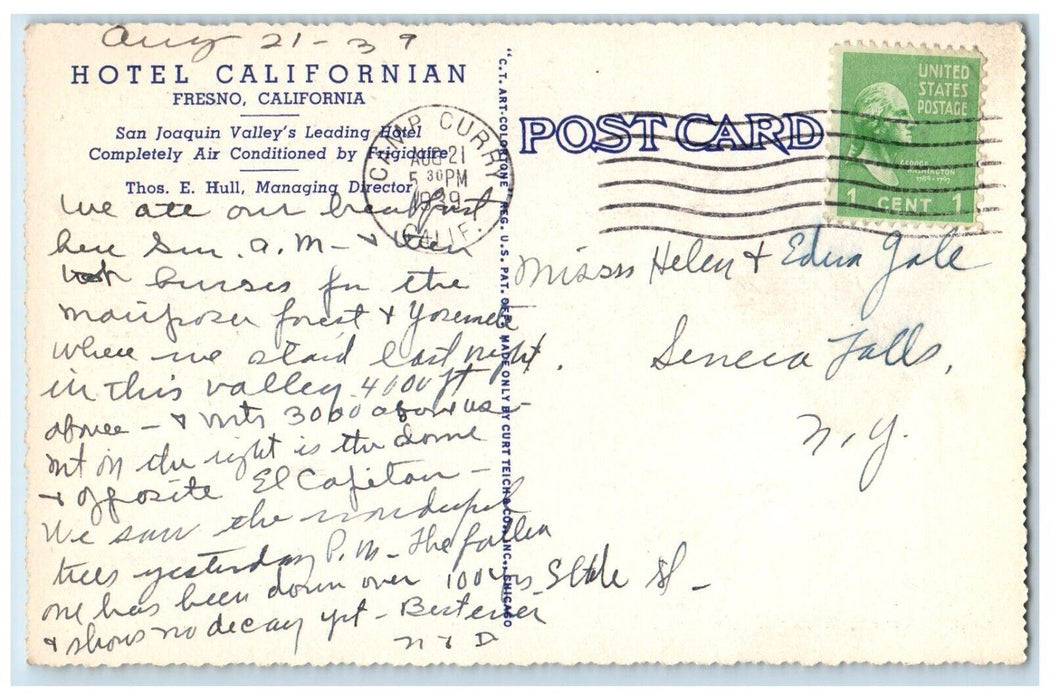 Aug 21-39
HOTEL CALIFORNIAN
FRESNO, CALIFORNIA
San Joaquin Valley's Leading Hotel
Completely Air Conditioned by Frigidaire
Thos. E. Hull, Managing Director
We ate our breakfast
here Sun. a.m. - & then
took busses for the
Mariposa forest & Yosemite
where we staid last night.
in this valley 4000 ft
above - & mts 3000 above us -
mt on the right is the dome
& opposite El Capitan -
We saw the wonderful
trees yesterday P.M. - The fallen
one has been down over 100 yrs
& shows no decay yet - Best ever
N & D
"C.T. ART-COLORTONE" REG. U.S. PAT. OFF. MADE ONLY BY CURT TEICH & CO., INC., CHICAGO
POST CARD
CAMP CURRY
AUG 21
5 30 PM
1939
CALIF.
UNITED
STATES
POSTAGE
GEORGE
WASHINGTON
1789-1797
1 CENT 1
Misses Helen & Edna Gale
Seneca Falls,
N.Y.
State St -